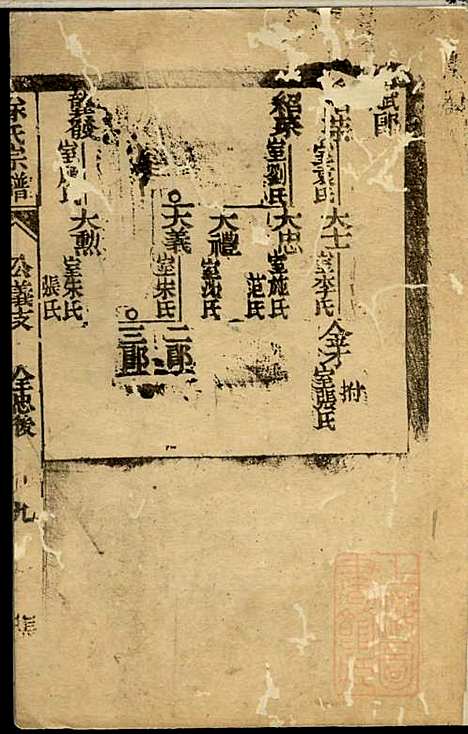 武郎
室袁氏
大士
室李氏
金才
室龔氏
附
紹球
室劉氏
大忠
室施氏
范氏
大禮
室沈氏
大義
室朱氏
二郎
三郎
大勲
室朱氏
張氏
徐氏宗譜
公義支
全忠後
九